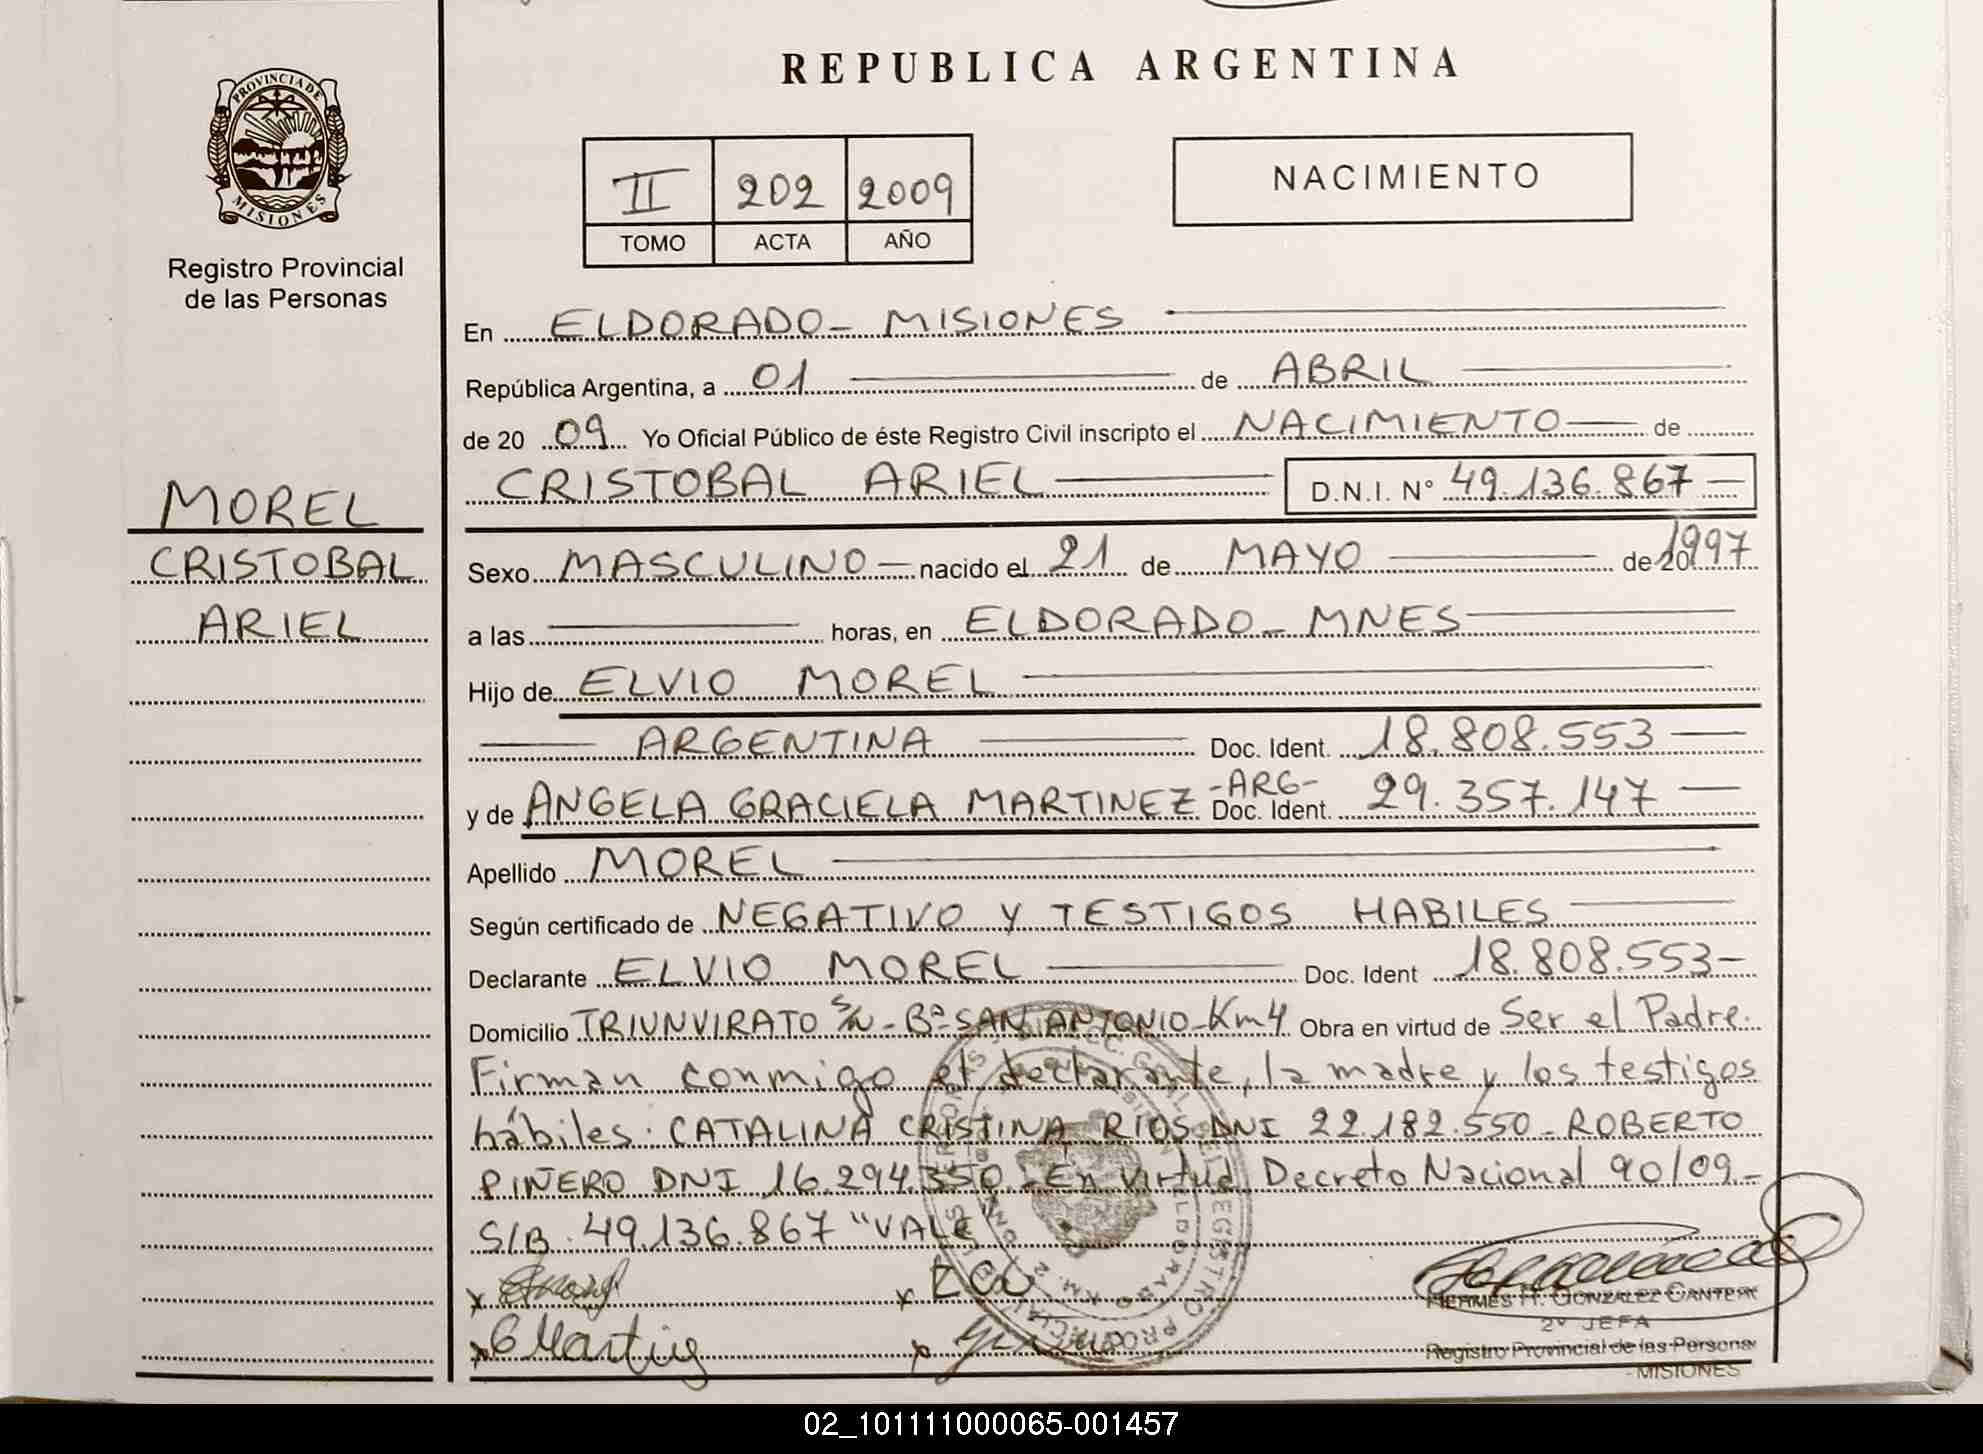 REPUBLICA ARGENTINA
PROVINCIA DE
MISIONES
Registro Provincial
de las Personas
II 202 2009
TOMO ACTA AÑO
NACIMIENTO
En ELDORADO - MISIONES
República Argentina, a 01 de ABRIL
de 20 09 Yo Oficial Público de éste Registro Civil inscripto el NACIMIENTO de
CRISTOBAL ARIEL D.N.I. N° 49.136.867
MOREL
CRISTOBAL
ARIEL
Sexo MASCULINO nacido el 21 de MAYO de 20 1997
a las horas, en ELDORADO - MNES
Hijo de ELVIO MOREL
ARGENTINA Doc. Ident. 18.808.553
y de ANGELA GRACIELA MARTINEZ -ARG- Doc. Ident. 29.357.147
Apellido MOREL
Según certificado de NEGATIVO Y TESTIGOS HABILES
Declarante ELVIO MOREL Doc. Ident 18.808.553-
Domicilio TRIUNVIRATO S/N - B° SAN ANTONIO - Km 4 Obra en virtud de Ser el Padre.
Firman conmigo el declarante, la madre y los testigos
hábiles: CATALINA CRISTINA RIOS DNI 22.182.550 - ROBERTO
PIÑERO DNI 16.294.350 - En virtud Decreto Nacional 90/09.-
S/B. 49.136.867 "VALE"
HERMES H. GONZALEZ CANTERO
2° JEFA
Registro Provincial de las Personas
- MISIONES
02_101111000065-001457